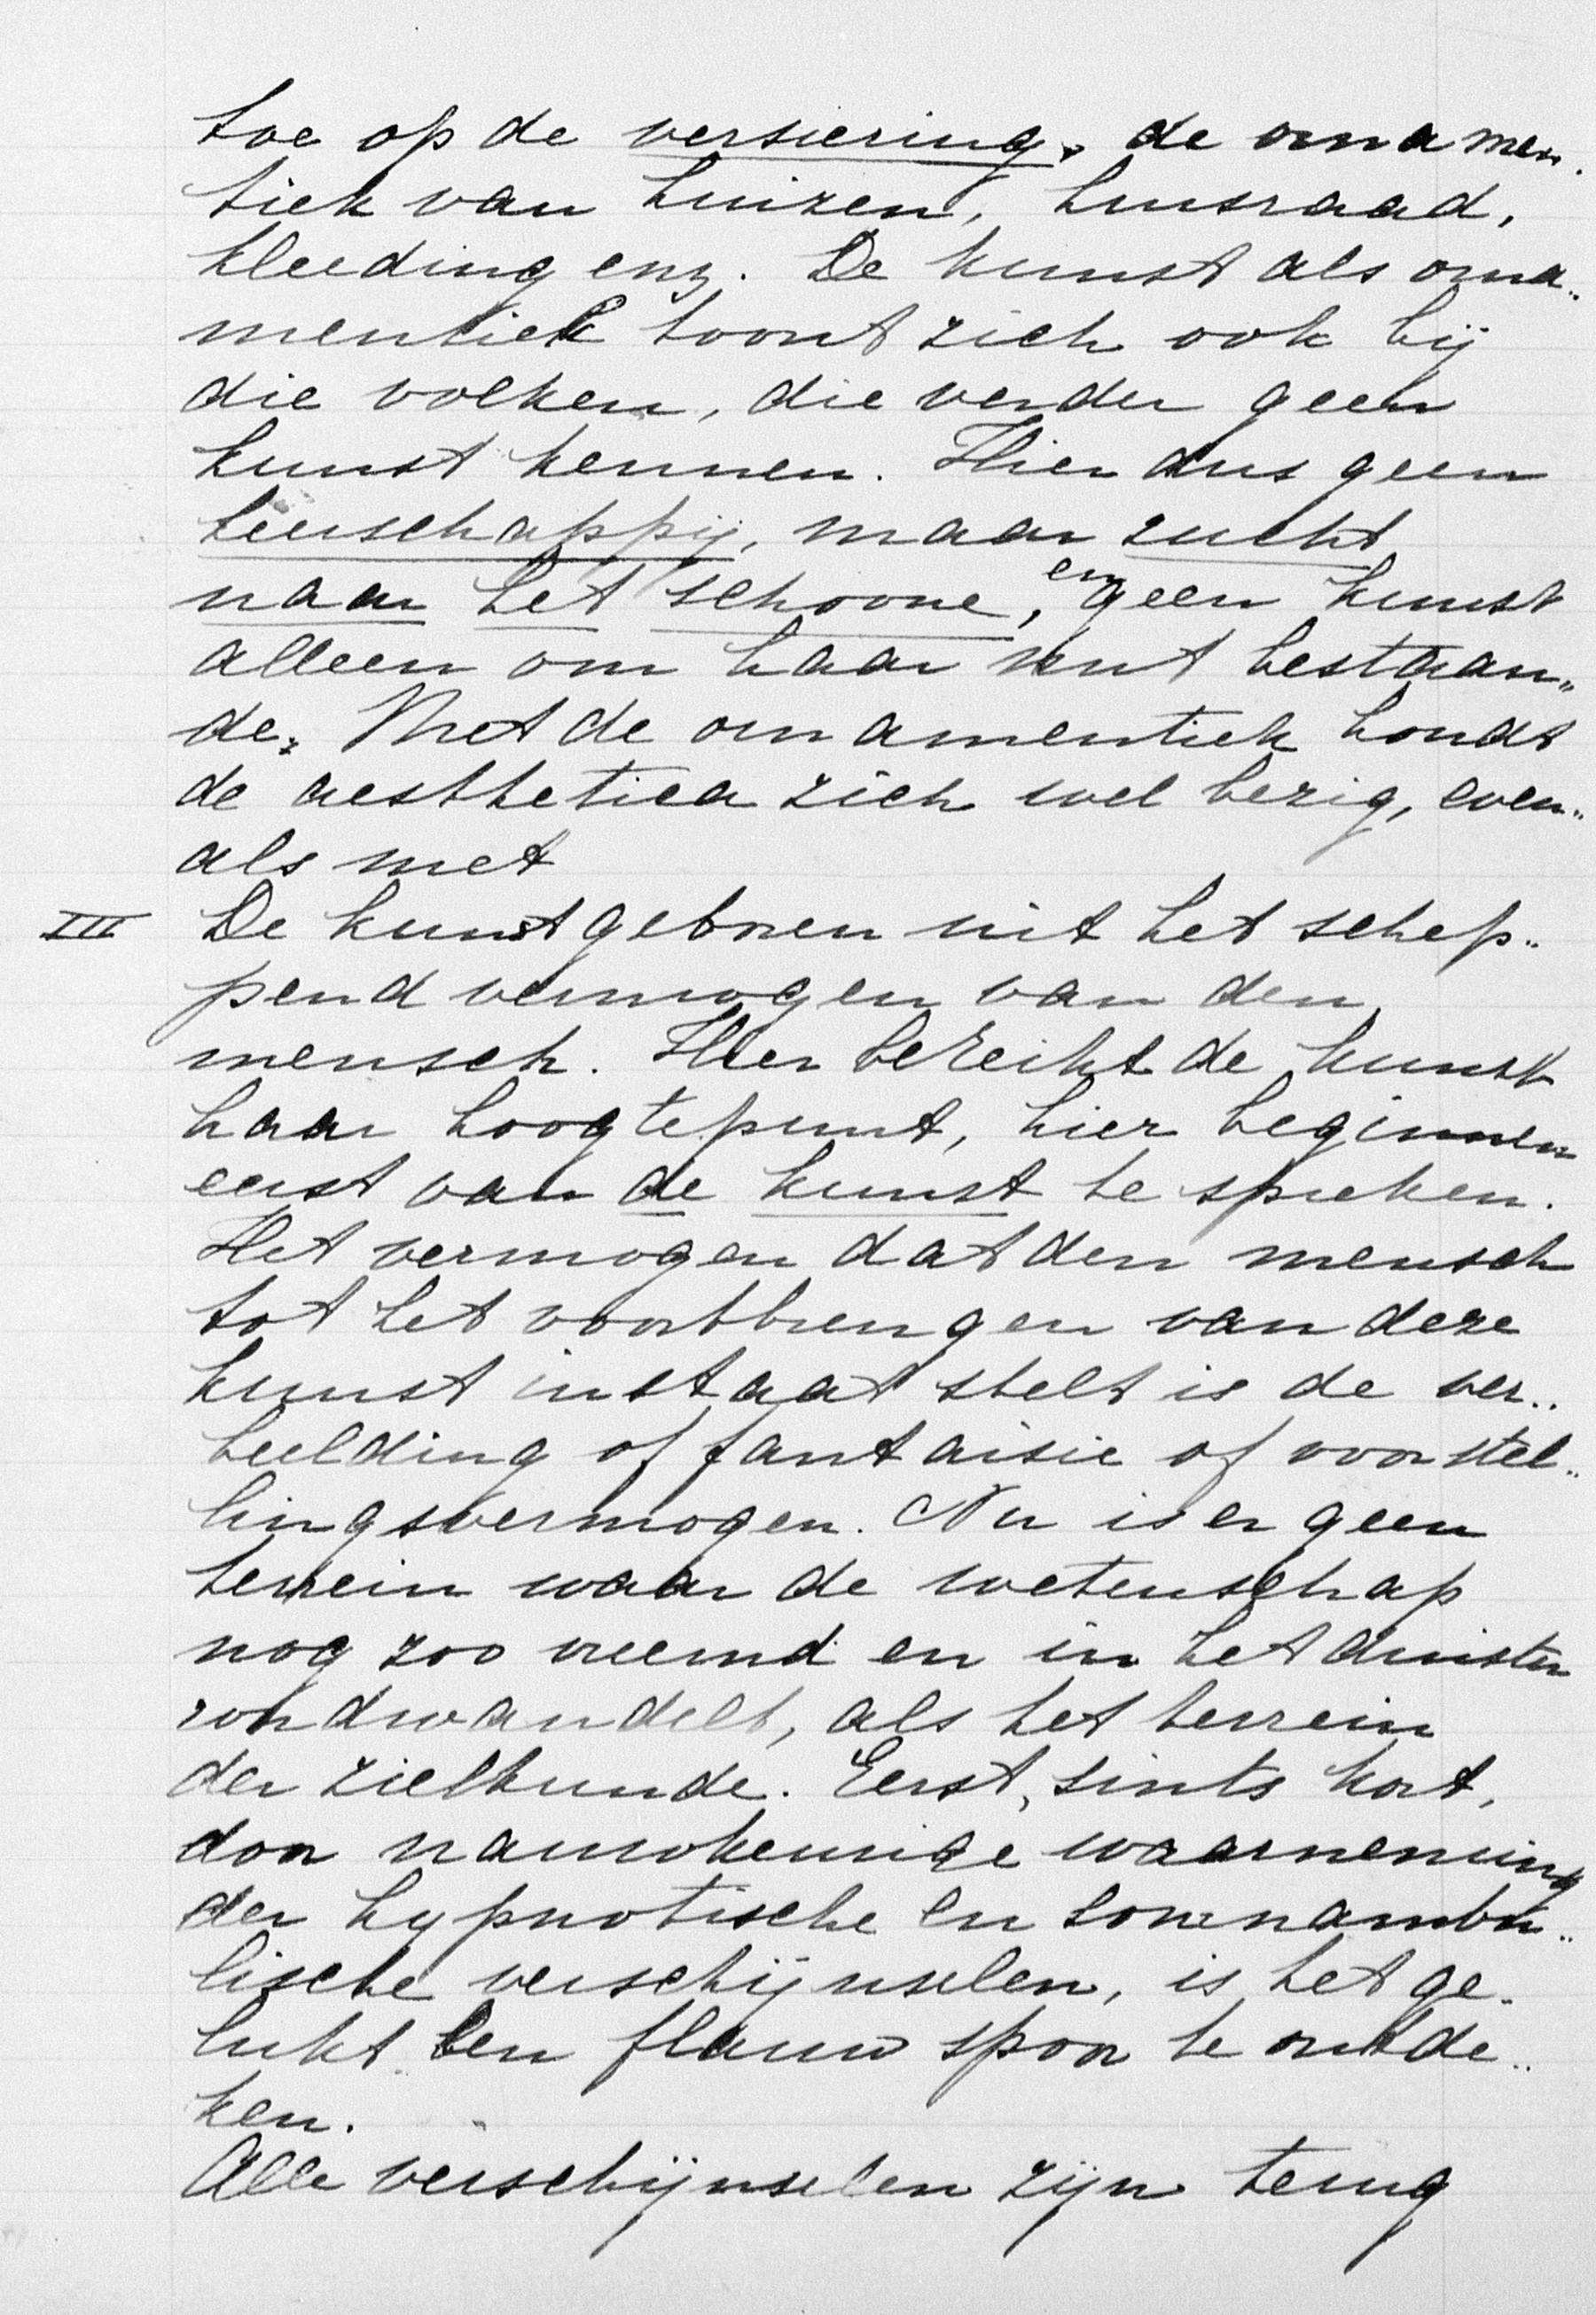 toe op de versiering, de ornamen-
tiek van huizen, huisraad,
kleeding enz. De kunst als orna..
mentiek toont zich ook bij
die volken, die verder geen
kunst kennen. Hier dus geen
heerschappij, maar zucht
naar het schoone, en geen kunst
alleen om haar nut bestaan..
de. Met de ornamentiek houdt
de aesthetica zich wel bezig, even..
als met
III De kunst geboren uit het schep..
pend vermogen van den
mensch. Hier bereikt de kunst
haar hoogtepunt, hier beginnen
eerst van de kunst te spreken.
Het vermogen dat den mensch
tot het voortbrengen van deze
kunst in staat stelt is de ver..
beelding of fantaisie of voorstel..
lingsvermogen. Nu is er geen
terrein waar de wetenschap
nog zoo vreemd en in het duister
rondwandelt, als het terrein
der zielkunde. Eerst, sints kort,
door nauwkeurige waarneming
der hypnotische en somnambu..
lische verschijnselen, is het ge-
lukt een flauw spoor te ontde..
ken.
Alle verschijnselen zijn terug